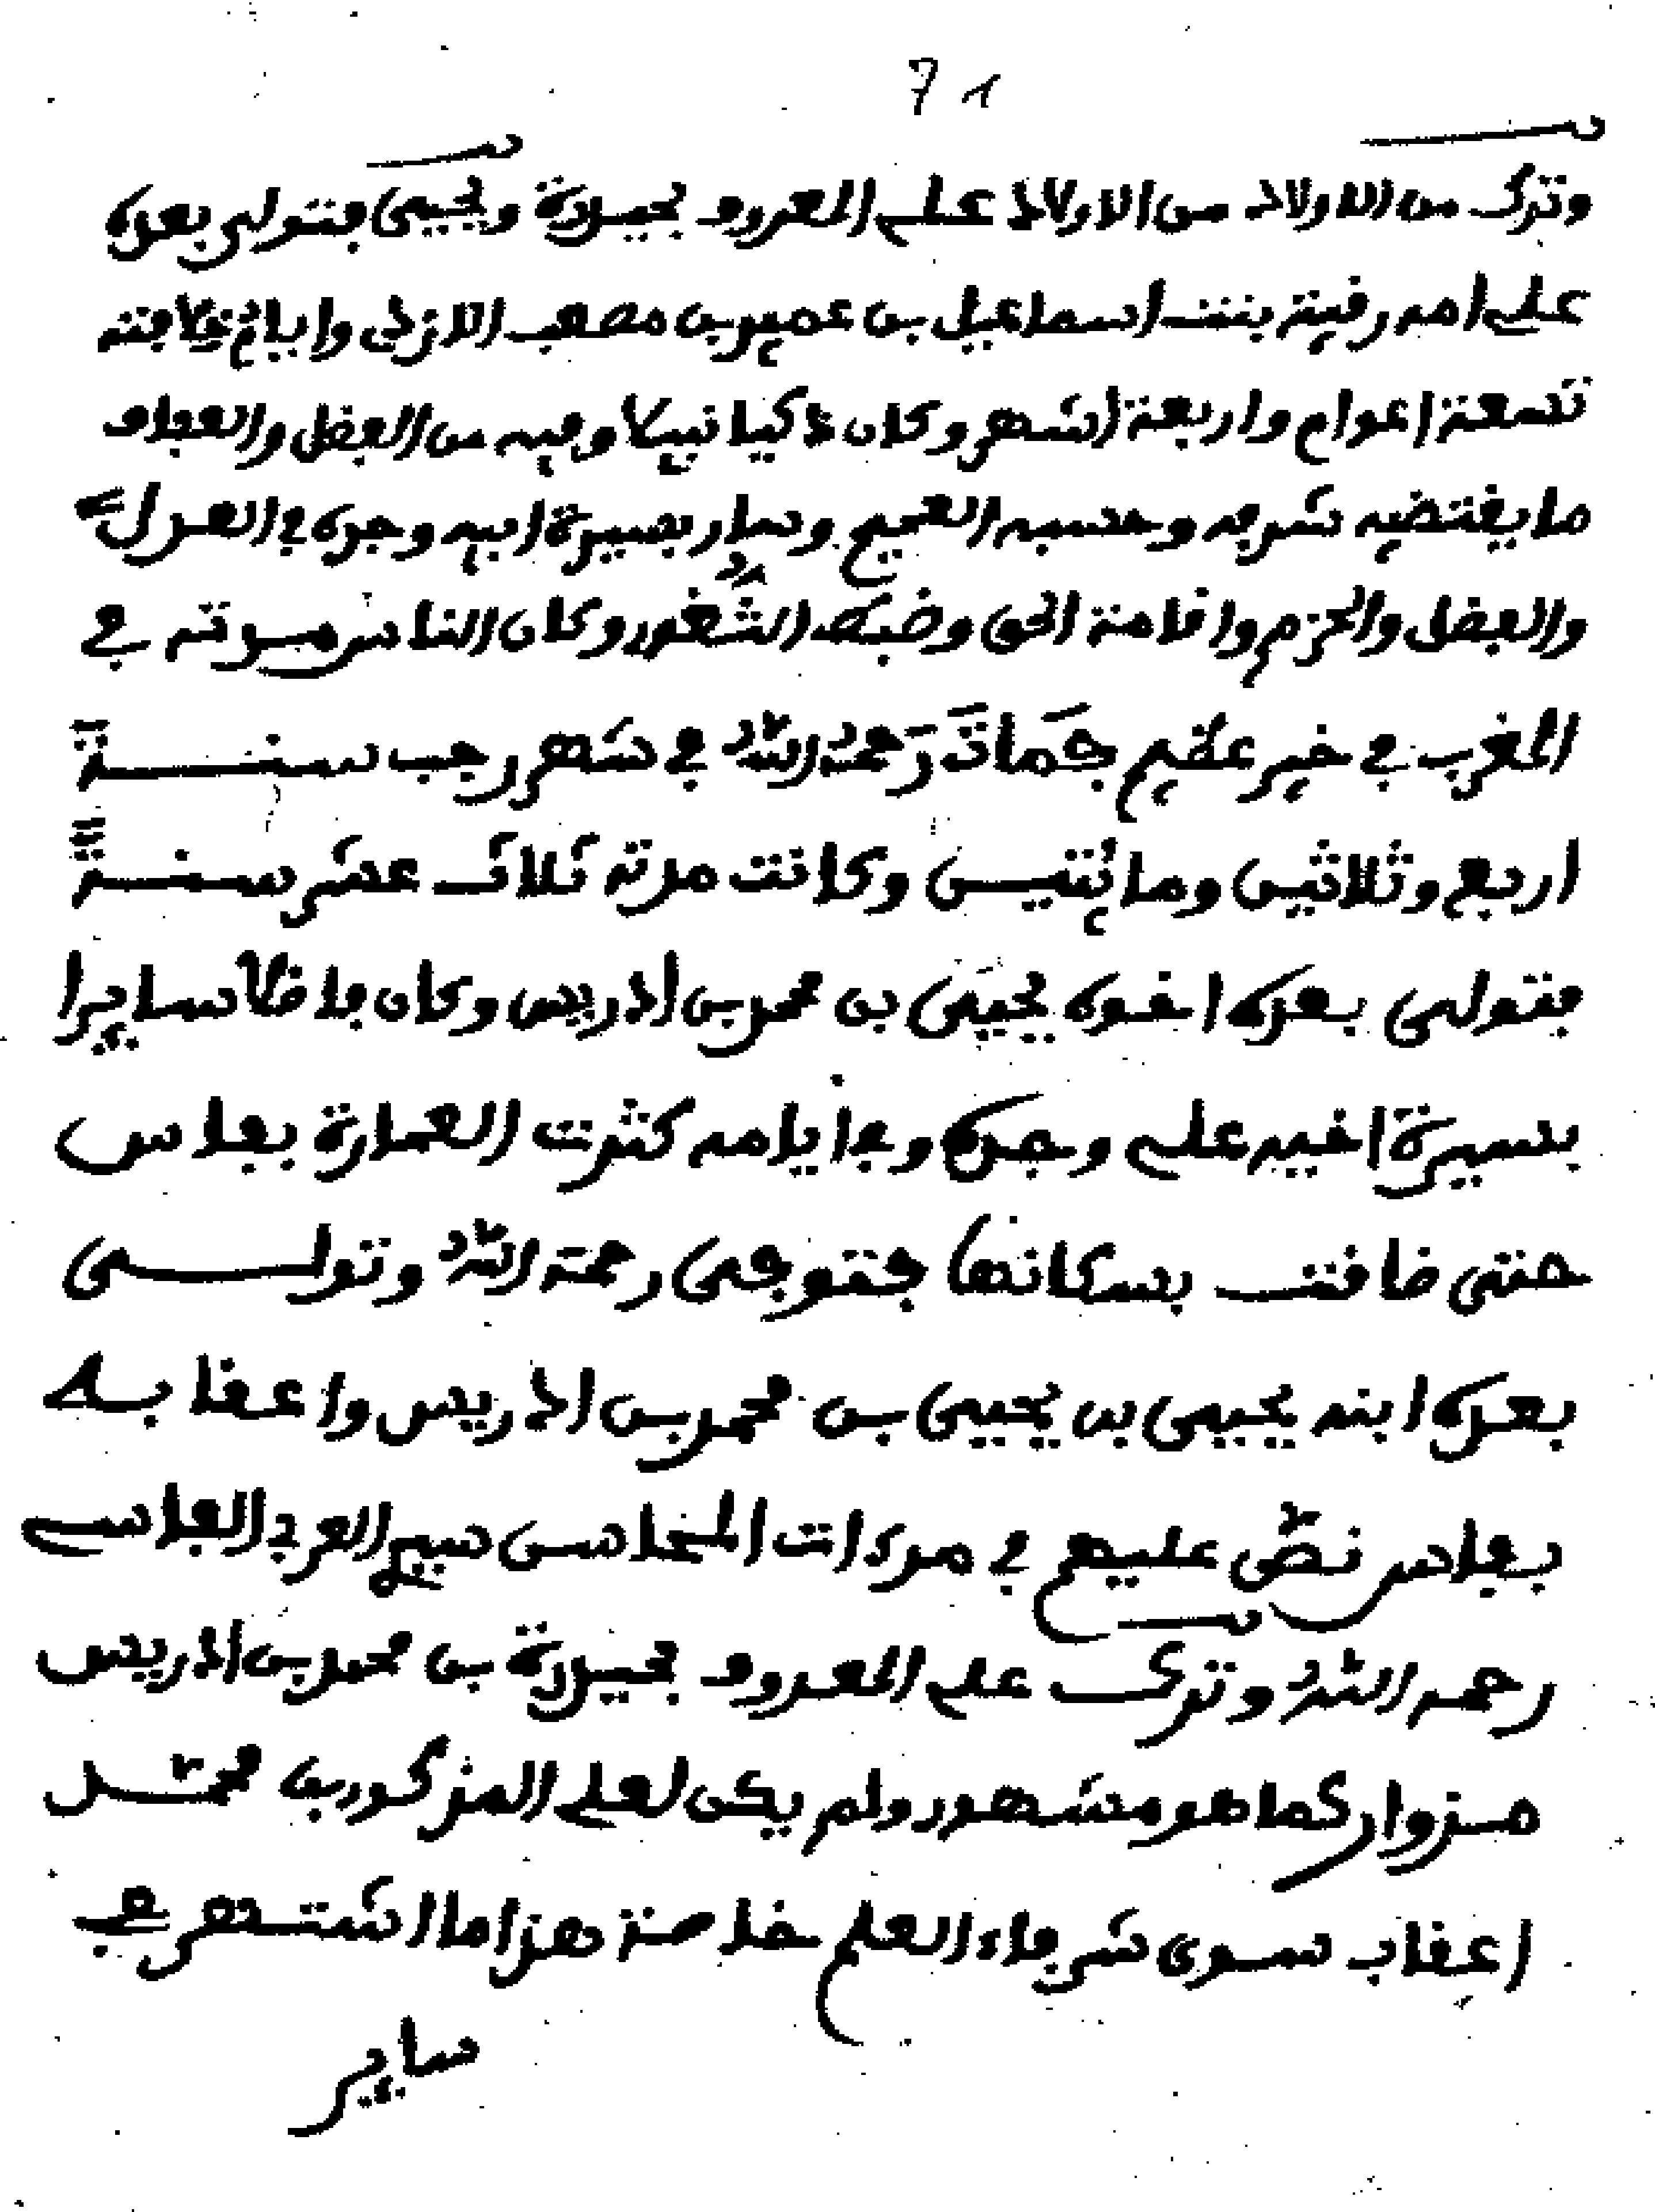 71
وترك من الاولاد من الاولاد على المعروف بحيدرة ويحيى فتولى بعده
على امه رقية بنت اسماعيل بن عمير بن مصعب الازدي وايام خلافته
تسعة اعوام واربعة اشهر وكان ذكيا نبيلا وفيه من الفضل والعفاف
ما يقتضيه شرفه وحسبه الصميم وسار بسيرة ابيه وجده في العدل
والفضل والحزم واقامة الحق وضبط الثغور وكان الناس مدته في
المغرب في خير عظيم فمات رحمه الله في شهر رجب سنة
اربع وثلاثين ومائتين وكانت مدته ثلاث عشر سنة
فتولى بعده اخوه يحيى بن محمد بن ادريس وكان فاضلا سايرا
بسيرة اخيه على وجده وفي أيامه كثرت العمارة بفاس
حتى ضاقت بسكانها فتوفى رحمة الله وتولى
بعده ابنه يحيى بن يحيى بن محمد بن ادريس واعقابه
بفاس نصّ عليهم في مرءات المحاسن سيدي العربي الفاسي
رحمه الله وترك على المعروف بحيدرة بن محمد بن ادريس
مزوار كما هو مشهور ولم يكن لعلي المذكور بن محمد
اعقاب سوى شرفاء العلم خاصة هذا ما اشتهر في
ساير